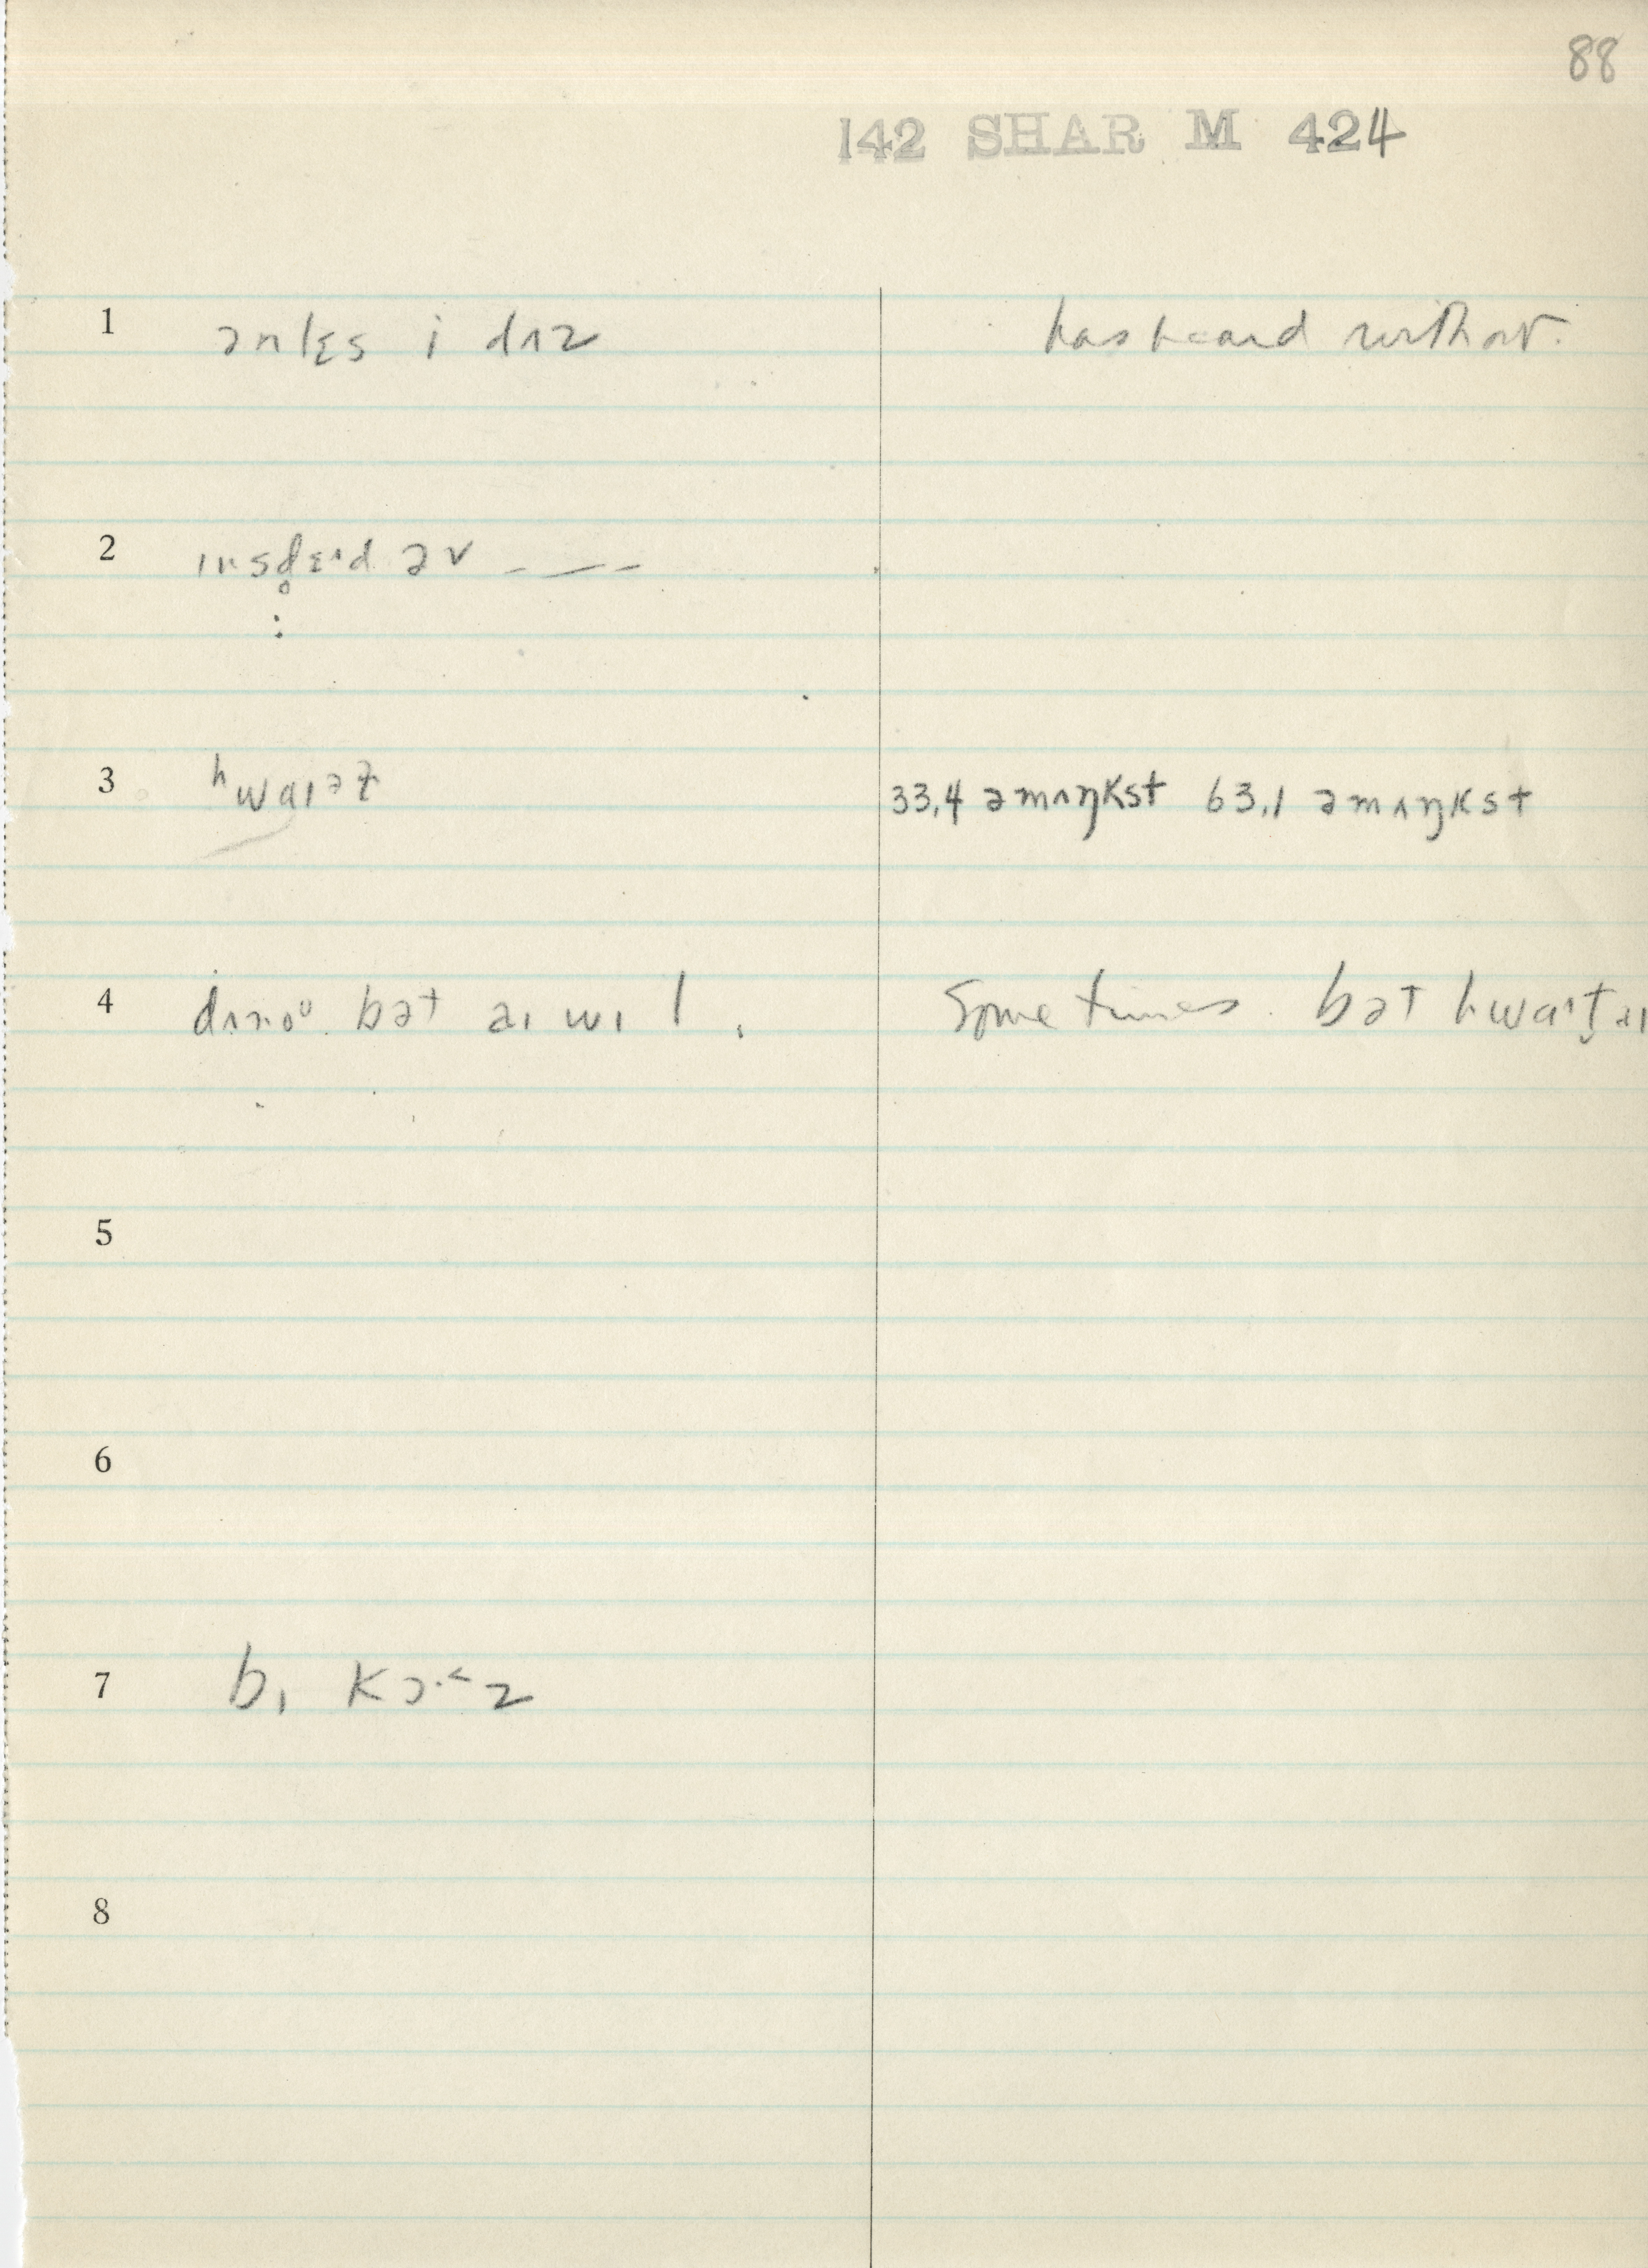 88
142 SHAR M 424
1 ənlɛs i dʌz has heard without.
2 ɪnsd̥ɛᶦd əv — — —
3 ʰwaɪət 33.4 əmʌŋkst 63.1 əmʌŋkst
4 dʌnoᵁ bət aɪ wɪl. Sometimes. bət hwaᶦt aɪ
5
6
7 bɪ kɔ·z
8